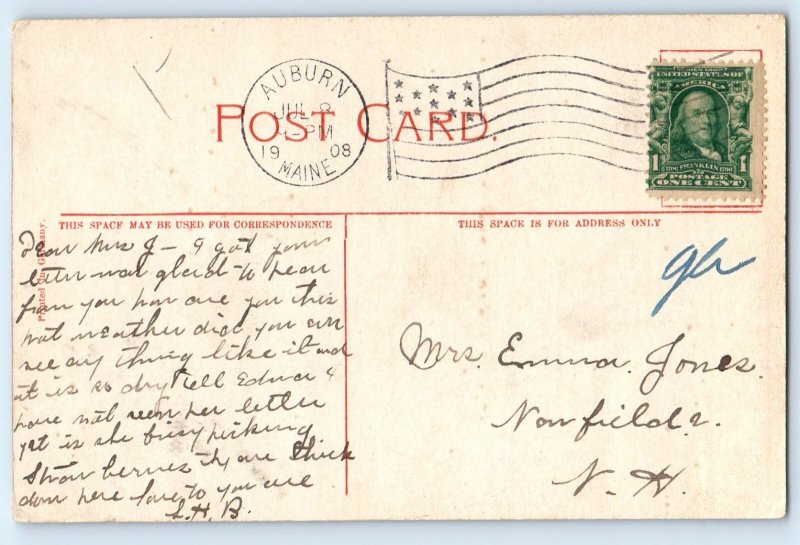 AUBURN
JUL 8
-PM
19 08
MAINE
POST CARD.
UNITED STATES OF
AMERICA
1 1
FRANKLIN
POSTAGE
ONE CENT
THIS SPACE MAY BE USED FOR CORRESPONDENCE
THIS SPACE IS FOR ADDRESS ONLY
Printed in Germany.
Dear Mrs J - I got your
letter was glad to hear
from you how are you this
hot weather did you ever
see any thing like it and
it is so dry tell Edna I
have not seen her letter
yet is she busy picking
Straw berries they are thick
down here love to you are
L. H. B.
Mrs. Emma Jones.
Newfields.
N. H.